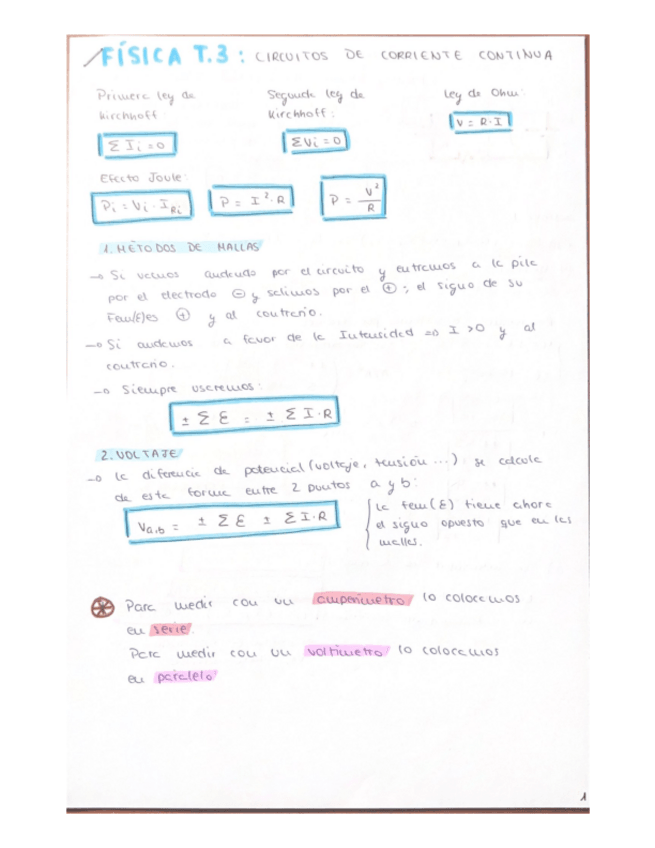 FÍSICA T.3: CIRCUITOS DE CORRIENTE CONTINUA
Primera ley de
Kirchhoff:
Σ Ii = 0
Segunda ley de
Kirchhoff:
ΣVi = 0
Ley de Ohm:
V = R·I
Efecto Joule:
Pi = Vi · IRi
P = I²·R
P = V²/R
1. MÉTODOS DE MALLAS
→ Si vamos andando por el circuito y entramos a la pila
por el electrodo ⊖ y salimos por el ⊕; el signo de su
Fem(E) es ⊕ y al contrario.
→ Si andamos a favor de la Intensidad => I > 0 y al
contrario.
→ Siempre usaremos:
± Σ E = ± Σ I·R
2. VOLTAJE
→ la diferencia de potencial (voltaje, tensión ...) se calcula
de esta forma entre 2 puntos a y b:
Va,b = ± Σ E ± Σ I·R
la fem (E) tiene ahora
el signo opuesto que en las
mallas.
Para medir con un amperímetro lo colocamos
en serie.
Para medir con un voltímetro lo colocamos
en paralelo
1